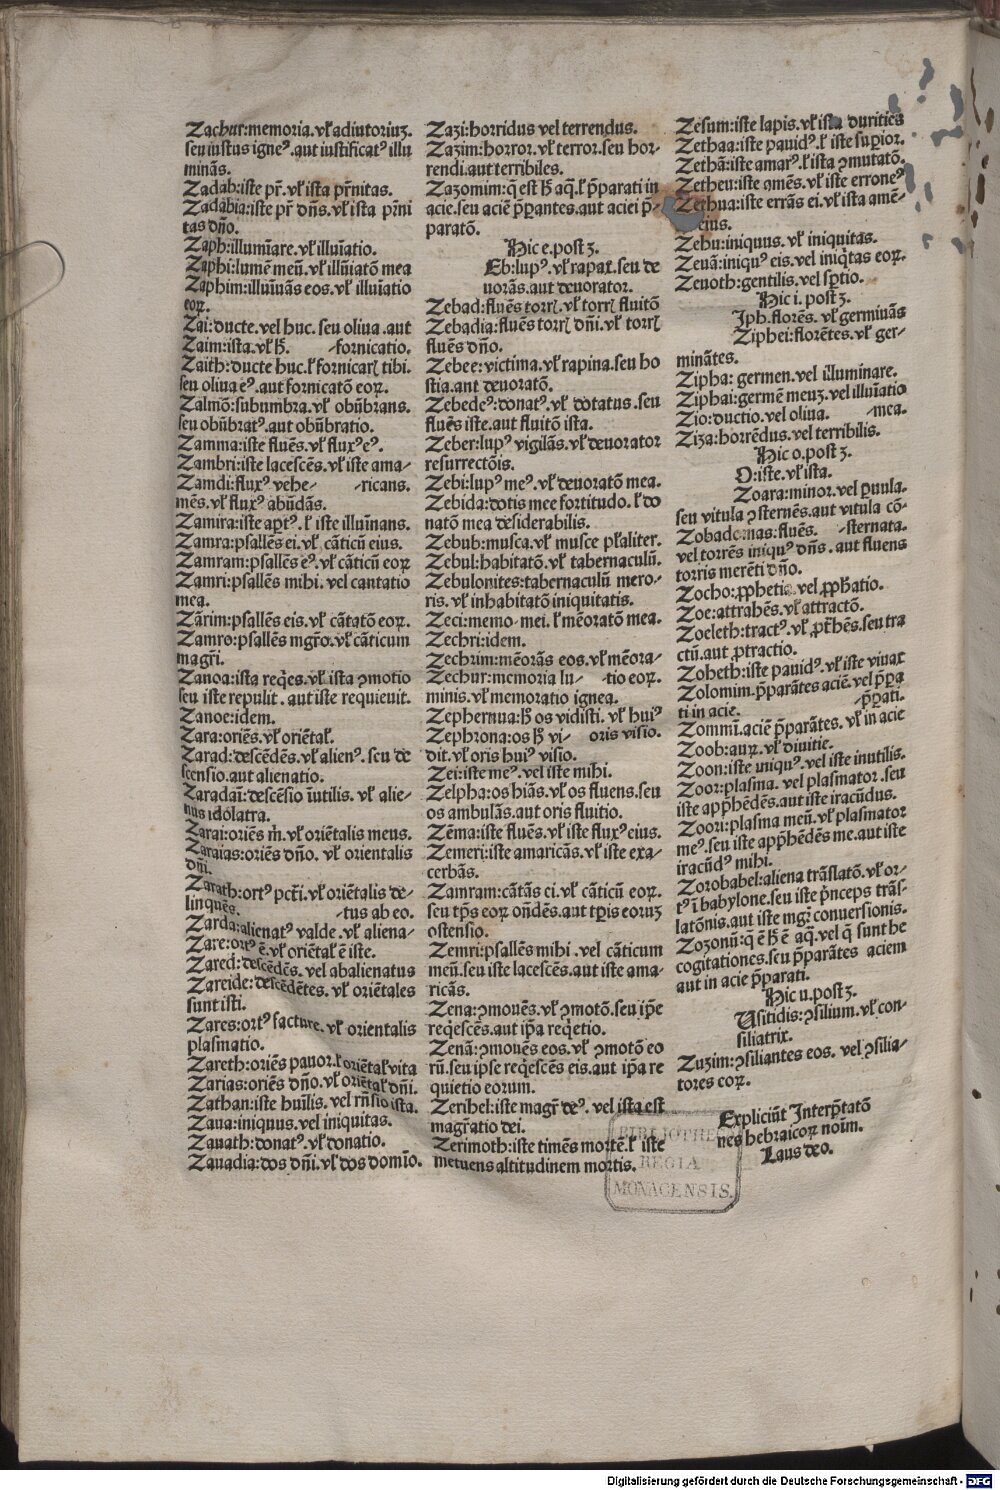 Zachur:memoria.vł adiutoriuʒ.
seu iustus igneꝰ.aut iustificatꝰ illu
minãs.
Zadab:iste pr̃.vł ista pr̃nitas.
Zadabia:iste pr̃ dñs.vł ista pr̃ni
tas dño.
Zaph:illumĩare.vł illuĩatio.
Zaphi:lumẽ meũ.vł illũiatõ mea
Zaphim:illuĩuãs eos.vł illuĩatio
eoꝝ.
Zai:ducte.vel huc.seu oliua.aut
Zaim:ista.vł h̃. -fornicatio.
Zaith:ducte huc.ł fornicarῖ tibi.
seu oliua eꝰ.aut fornicatõ eoꝝ.
Zalmõ:subumbra.vł obũbrans.
seu obũbratꝰ.aut obũbratio.
Zamma:iste fluẽs.vł fluxꝰ eꝰ.
Zambri:iste lacescẽs.vł iste ama-
Zamdi:fluxꝰ vehe- -ricans.
mẽs.vł fluxꝰ abũdãs.
Zamira:iste apt̃ꝰ.ł iste illuĩnans.
Zamra:psallẽs ei.vł cãticũ eius.
Zamram:psallẽs eꝰ.vł cãticũ eoꝝ
Zamri:psallẽs mihi.vel cantatio
mea.
Zarim:psallẽs eis.vł cãtatõ eoꝝ.
Zamro:psallẽs mgr̃o.vł cãticum
magr̃i.
Zanoa:ista req̃es.vł ista ꝯmotio
seu iste repulit.aut iste requieuit.
Zanoe:idem.
Zara:oriẽs.vł oriẽtał.
Zarad:descẽdẽs.vł alienꝰ.seu de
scensio.aut alienatio.
Zaradaĩ:descẽsio ĩutilis.vł alie-
nus idolatra.
Zarai:oriẽs m̃.vł oriẽtalis meus.
Zaraias:oriẽs dño.vł orientalis
dñi.
Zarath:ortꝰ pct̃i.vł oriẽtalis de-
linquẽs. -tus ab eo.
Zarda:alienatꝰ valde.vł aliena-
Zare:ortꝰ ẽ.vł oriẽtał ẽ iste.
Zared:descẽdẽs.vel abalienatus
Zareide:descẽdẽtes.vł oriẽtales
sunt isti.
Zares:ortꝰ facture.vł orientalis
plasmatio.
Zareth:oriẽs pauor.ł oriẽtał vita
Zarias:oriẽs dño.vł oriẽtał dñi.
Zathan:iste huĩlis.vel rñsio ista.
Zaua:iniquus.vel iniquitas.
Zauath:donatꝰ.vł donatio.
Zauadia:dos dñi.vł dos domĩo.
Zazi:horridus vel terrendus.
Zazim:horror.vł terror.seu hor-
rendi.aut terribiles.
Zazomim:q̃ est h̃ aq̃.ł p̃parati in
acie.seu aciẽ p̃pantes.aut aciei p̃-
paratõ.
Hic e.post ʒ.
Eb:lupꝰ.vł rapax.seu de
uorãs.aut deuorator.
Zebad:fluẽs torrῖ.vł torrῖ fluitõ
Zebadia:fluẽs torrῖ dñi.vł torrῖ
fluẽs dño.
Zebee:victima.vł rapina.seu ho
stia.aut deuoratõ.
Zebedeꝰ:donatꝰ.vł dotatus.seu
fluẽs iste.aut fluitõ ista.
Zeber:lupꝰ vigilãs.vł deuorator
resurrectõis.
Zebi:lupꝰ meꝰ.vł deuoratõ mea.
Zebida:dotis mee fortitudo.ł do
natõ mea desiderabilis.
Zebub:musca.vł musce płaliter.
Zebul:habitatõ.vł tabernaculũ.
Zebulonites:tabernaculũ mero-
ris.vł inhabitatõ iniquitatis.
Zeci:memo-mei.ł mẽoratõ mea.
Zechri:idem.
Zechrim:mẽorãs eos.vł mẽora-
Zechur:memoria lu- -tio eoꝝ.
minis.vł memoratio ignea.
Zephernua:h̃ os vidisti.vł huiꝰ
Zephrona:os h̃ vi- oris visio.
dit.vł oris huiꝰ visio.
Zei:iste meꝰ.vel iste mihi.
Zelpha:os hiãs.vł os fluens.seu
os ambulãs.aut oris fluitio.
Zẽma:iste fluẽs.vł iste fluxꝰ eius.
Zemeri:iste amaricãs.vł iste exa-
cerbãs.
Zamram:cãtãs ei.vł cãticũ eoꝝ.
seu tp̃s eoꝝ oñdẽs.aut tp̃is eoruʒ
ostensio.
Zemri:psallẽs mihi.vel cãticum
meũ.seu iste lacescẽs.aut iste ama-
ricãs.
Zena:ꝯmouẽs.vł ꝯmotõ.seu ip̃e
req̃escẽs.aut ip̃a req̃etio.
Zenã:ꝯmouẽs eos.vł ꝯmotõ eo
rũ.seu ipse req̃escẽs eis.aut ip̃a re
quietio eorum.
Zeribel:iste magr̃ deꝰ.vel ista est
magr̃atio dei.
Zerimoth:iste timẽs mortẽ.ł iste
metuens altitudinem mortis.
Zesum:iste lapis.vł ista durities
Zethaa:iste pauidꝰ.ł iste supior.
Zethã:iste amarꝰ.ł ista ꝯmutatõ.
Zetheu:iste amẽs.vł iste erroneꝰ
Zethua:iste errãs ei.vł ista amẽ-
eius.
Zehu:iniquus.vł iniquitas.
Zeuã:iniquꝰ eis.vel iniq̃tas eoꝝ.
Zeuoth:gentilis.vel sp̃tio.
Hic i.post ʒ.
Iph.florẽs.vł germiuãs
Ziphei:florẽtes.vł ger-
minãtes.
Zipha:germen.vel illuminare.
Ziphai:germẽ meuʒ.vel illuĩatio
Zio:ductio.vel oliua. -mea.
Ziza:horrẽdus.vel terribilis.
Hic o.post ʒ.
O:iste.vł ista.
Zoara:minor.vel ꝑuula.
seu vitula ꝯsternẽs.aut vitula cõ-
Zobadomas:fluẽs. -sternata.
vel torrẽs iniquꝰ dñs.aut fluens
torris merẽti dño.
Zocho:ꝓphetia.vel ꝓph̃atio.
Zoe:attrahẽs.vł attractõ.
Zoeleth:tractꝰ.vł ꝓt̃hẽs.seu tra
ctũ.aut ꝓtractio.
Zoheth:iste pauidꝰ.vł iste viuax
Zolomim.p̃parãtes aciẽ.vel p̃pa
ti in acie. -p̃pati.
Zommĩ.aciẽ p̃parãtes.vł in acie
Zoob:auꝝ.vł diuitie.
Zoon:iste uniquꝰ.vel iste inutilis.
Zoor:plasma.vel plasmator.seu
iste app̃hẽdẽs.aut iste iracũdus.
Zoori:plasma meũ.vł plasmator
meꝰ.seu iste app̃hẽdẽs me.aut iste
iracũdꝰ mihi.
Zorobabel:aliena trãslatõ.vł or-
tꝰ ĩ babylone.seu iste p̃nceps trãs-
latõnis.aut iste mgr̃ conuersionis.
Zozonũ:q̃ ẽ h̃ ẽ aq̃.vel q̃ sunt he
cogitationes.seu p̃parãtes aciem
aut in acie p̃parati.
Hic u.post ʒ.
Usitidis:ꝯsilium.vł con-
siliatrix.
Zuzim:ꝯsiliantes eos.vel ꝯsilia-
tores eoꝝ.
Expliciũt Interp̃tatõ
nes hebraicoꝝ noĩm.
Laus deo.
BIBLIOTHECA
REGIA
MONACENSIS.
Digitalisierung gefördert durch die Deutsche Forschungsgemeinschaft - DFG